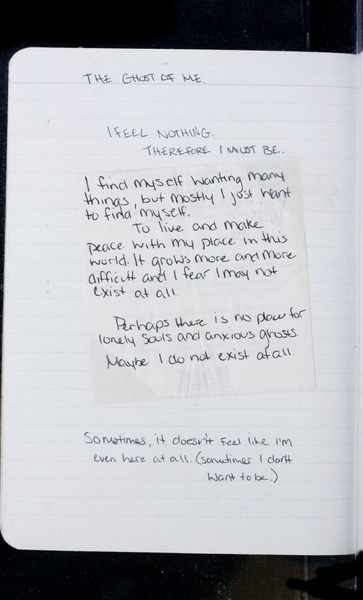 THE GHOST OF ME.
I FEEL NOTHING.
THEREFORE I MUST BE.
I find myself wanting many
things, but mostly I just want
to find myself.
To live and make
peace with my place in this
world. It grows more and more
difficult and I fear I may not
exist at all.
Perhaps there is no place for
lonely souls and anxious ghosts.
Maybe I do not exist at all.
Sometimes, it doesn't feel like I'm
even here at all. (sometimes I don't
want to be.)